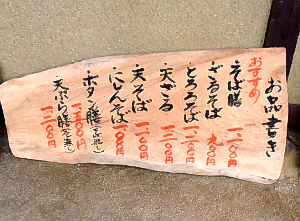 お品書き
おすすめ
・そば膳 一、二〇〇円
・ざるそば 九〇〇円
・とろろそば 一、一〇〇円
・天ざる 一、二〇〇円
・天そば 一、二〇〇円
・にしんそば 一、一〇〇円
・ボタン膳 一、五〇〇円
・天ぷら膳 一、二〇〇円